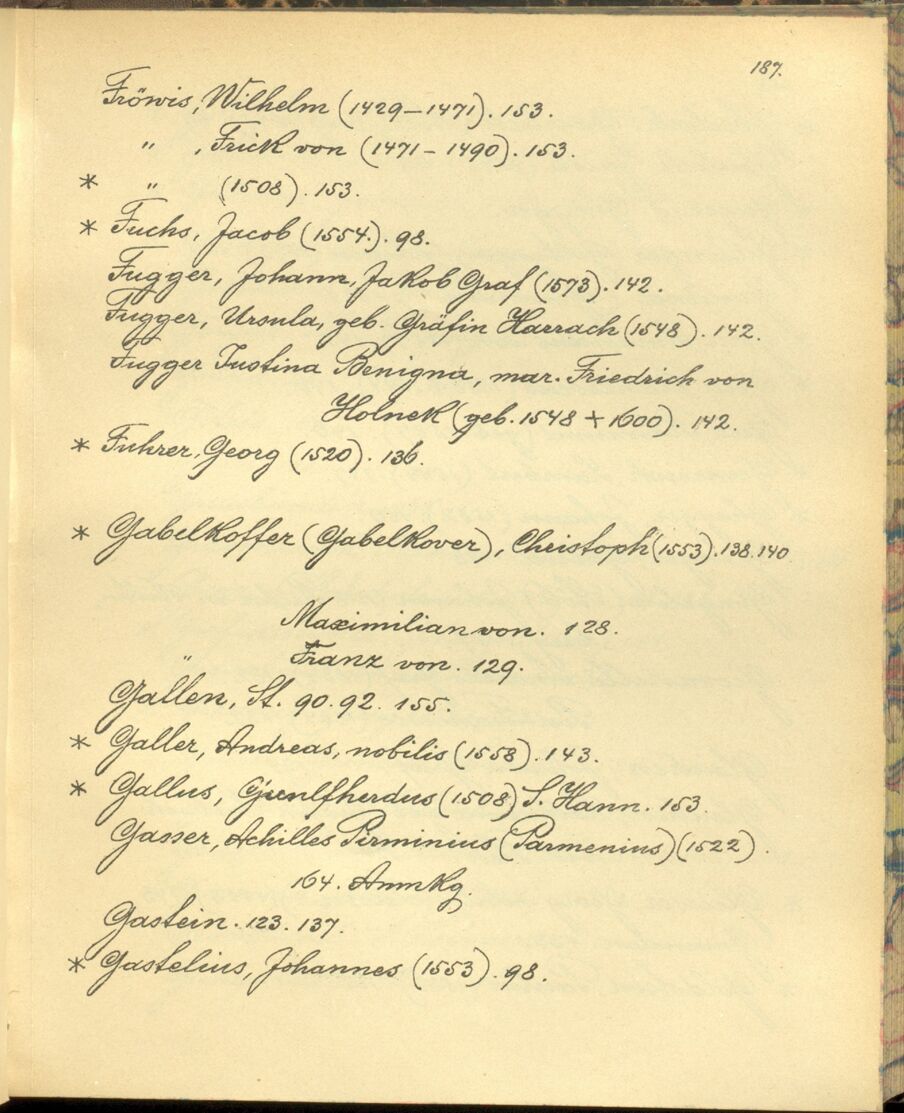 187.
Fröwis, Wilhelm (1429–1471). 153.
" , Frick von (1471–1490). 153.
* " (1508). 153.
* Fuchs, Jacob (1554.). 98.
Fugger, Johann, Jakob Graf (1573). 142.
Fugger, Ursula, geb. Gräfin Harrach (1548). 142.
Fugger Justina Benigna, mar. Friedrich von
Holnek (geb. 1548 + 1600). 142.
* Fuhrer, Georg (1520). 136.
* Gabelkoffer (Gabelkover), Christoph (1553). 138. 140
Maximilian von. 128.
" Franz von. 129.
Gallen, St. 90. 92. 155.
* Galler, Andreas, nobilis (1558). 143.
* Gallus, (1508) S. Hann. 153.
Gasser, Achilles Pirminius (Parmenius) (1522).
164. Anmkg.
Gastein. 123. 137.
* Gastelius, Johannes (1553). 98.